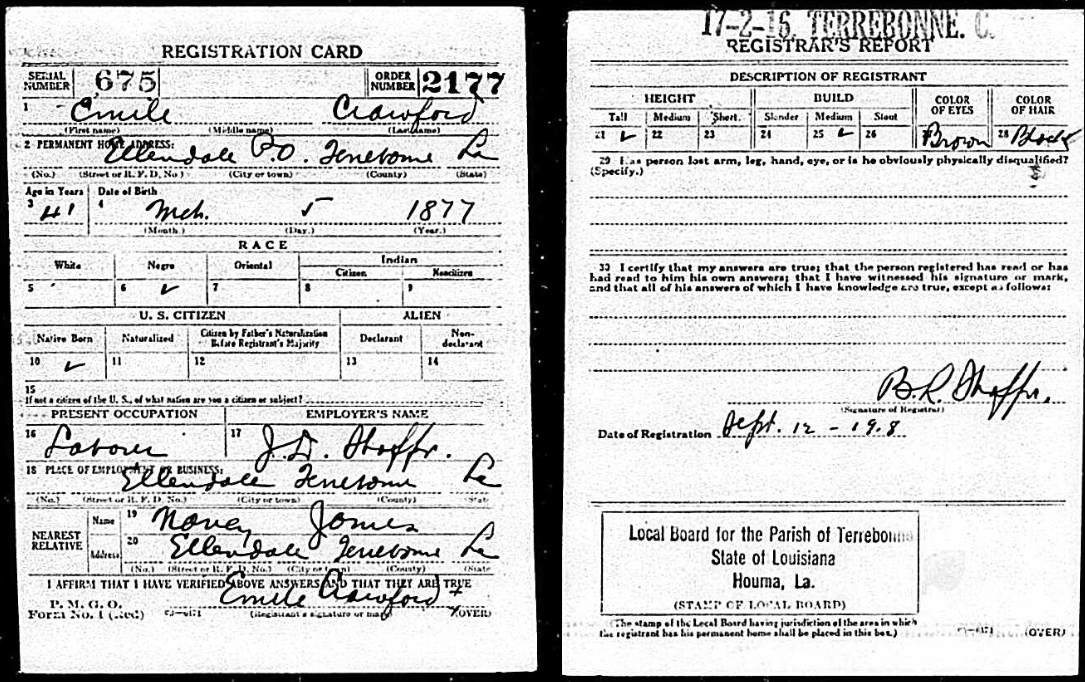 REGISTRATION CARD
SERIAL NUMBER 675 ORDER NUMBER 2177
1 Emile Crawford
(First name) (Middle name) (Last name)
2 PERMANENT HOME ADDRESS:
Ellendale P.O. Terrebonne La
(No.) (Street or R. F. D. No.) (City or town) (County) (State)
Age in Years Date of Birth
3 41 4 Mch. 5 1877
(Month.) (Day.) (Year.)
RACE
White Negro Oriental Indian
Citizen Noncitizen
5 6 ✓ 7 8 9
U. S. CITIZEN ALIEN
Native Born Naturalized Citizen by Father's Naturalization Before Registrant's Majority Declarant Non-declarant
10 ✓ 11 12 13 14
15
If not a citizen of the U. S., of what nation are you a citizen or subject?
PRESENT OCCUPATION EMPLOYER'S NAME
16 Laborer 17 J. D. Shaffr.
18 PLACE OF EMPLOYMENT OR BUSINESS:
Ellendale Terrebonne La
(No.) (Street or R. F. D. No.) (City or town) (County) (State)
NEAREST RELATIVE
Name 19 Nancy James
Address 20 Ellendale Terrebonne La
(No.) (Street or R. F. D. No.) (City or town) (County) (State)
I AFFIRM THAT I HAVE VERIFIED ABOVE ANSWERS AND THAT THEY ARE TRUE
P. M. G. O.
Form No. 1 (Red) Emile Crawford +
(Registrant's signature or mark) (OVER)
17-2-16. TERREBONNE. C.
REGISTRAR'S REPORT
DESCRIPTION OF REGISTRANT
HEIGHT BUILD COLOR OF EYES COLOR OF HAIR
Tall Medium Short Slender Medium Stout
21 ✓ 22 23 24 25 ✓ 26 27 Brown 28 Black
29 Has person lost arm, leg, hand, eye, or is he obviously physically disqualified?
(Specify.)
30 I certify that my answers are true; that the person registered has read or has
had read to him his own answers; that I have witnessed his signature or mark,
and that all of his answers of which I have knowledge are true, except as follows:
B. R. Shaffr.
(Signature of Registrar)
Date of Registration Sept. 12 - 19.8
Local Board for the Parish of Terrebonne
State of Louisiana
Houma, La.
(STAMP OF LOCAL BOARD)
(The stamp of the Local Board having jurisdiction of the area in which
the registrant has his permanent home shall be placed in this box.)
(OVER)